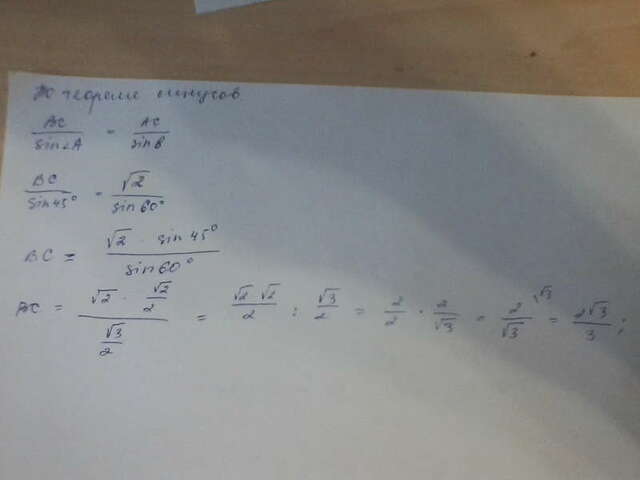 По теореме синусов
BC/sin∠A = AC/sinB
BC/sin45° = √2/sin60°
BC = √2 · sin45°/sin60°
BC = (√2 · √2/2)/(√3/2) = √2·√2/2 : √3/2 = 2/2 · 2/√3 = 2/√3 \√3 = 2√3/3;